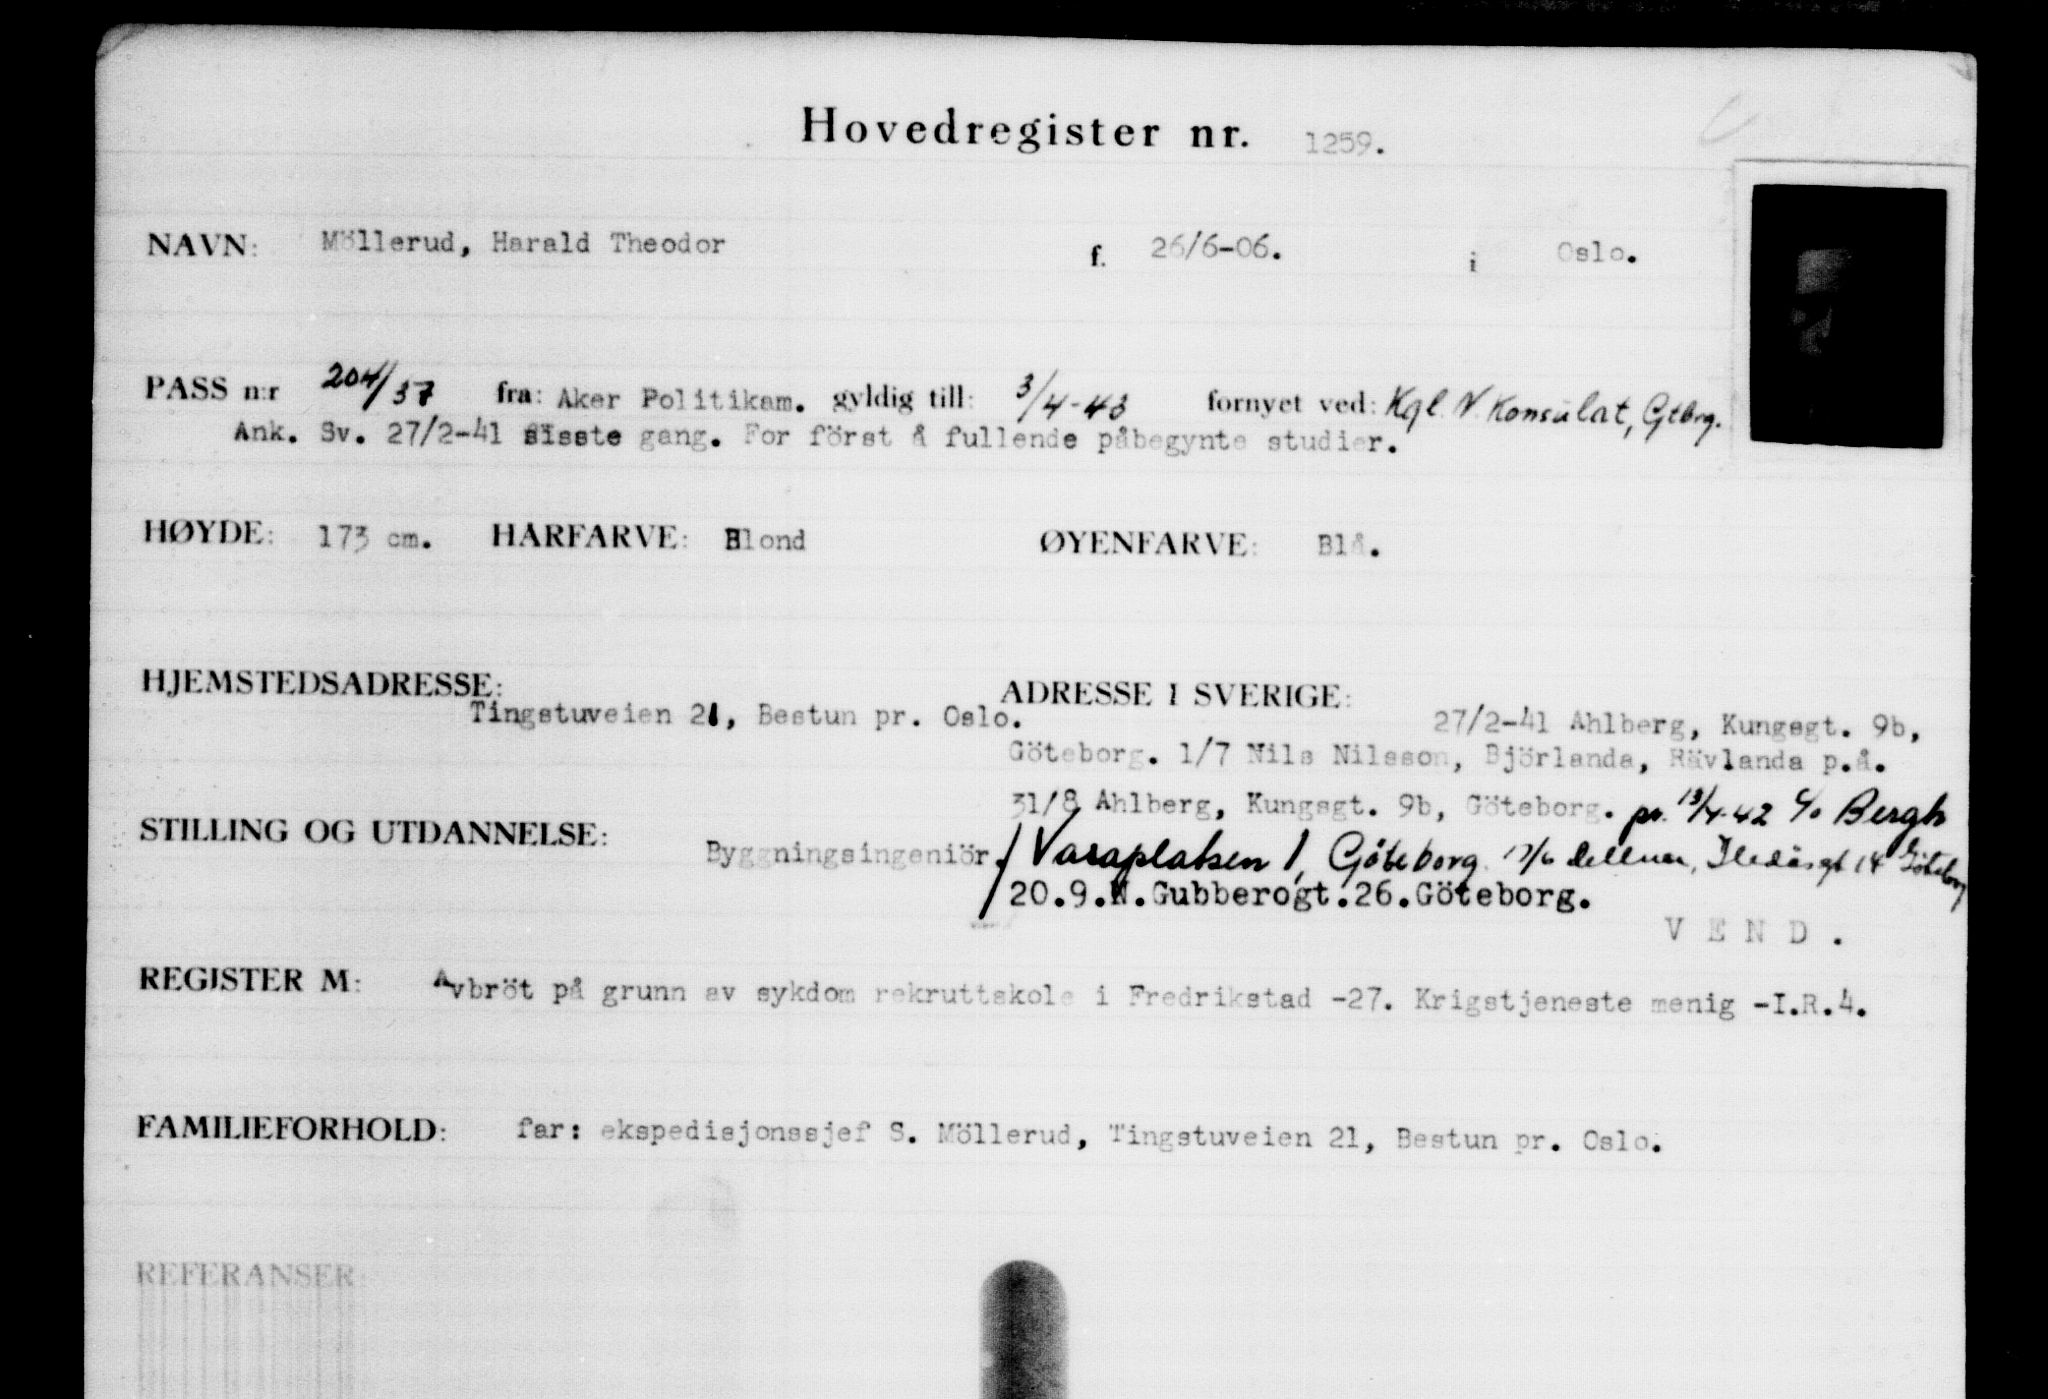 Hovedregister nr. 1259.
NAVN: Möllerud, Harald Theodor f. 26/6-06. i Oslo.
PASS n:r 204/37 fra: Aker Politikam. gyldig till: 3/4-43 fornyet ved: Kgl. N. Konsulat, Gtbrg.
Ank. Sv. 27/2-41 sisste gang. For först å fullende påbegynte studier.
HØYDE: 173 cm. HÅRFARVE: Blond ØYENFARVE: Blå.
HJEMSTEDSADRESSE: ADRESSE I SVERIGE:
Tingstuveien 21, Bestun pr. Oslo. 27/2-41 Ahlberg, Kungsgt. 9b,
Göteborg. 1/7 Nils Nilsson, Björlanda, Rävlanda p.å.
31/8 Ahlberg, Kungsgt. 9b, Göteborg. pr. 13/4-42 c/o Bergh
STILLING OG UTDANNELSE: Byggningsingeniör. Vasaplatsen 1, Göteborg. Göteborg
20.9.N.Gubberogt.26.Göteborg.
V E N D .
REGISTER M: Avbröt på grunn av sykdom rekruttskole i Fredrikstad -27. Krigstjeneste menig -I.R.4.
FAMILIEFORHOLD: far: ekspedisjonssjef S. Möllerud, Tingstuveien 21, Bestun pr. Oslo.
REFERANSER: